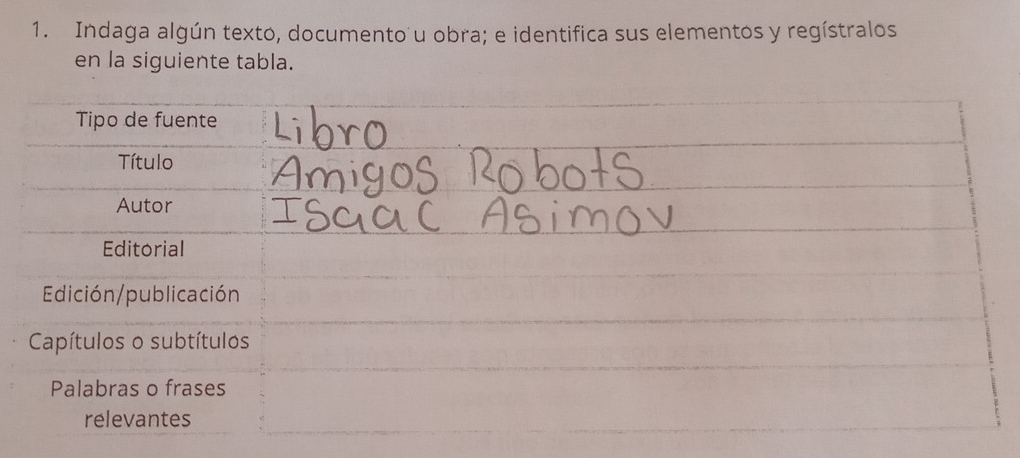 1. Indaga algún texto, documento u obra; e identifica sus elementos y regístralos
en la siguiente tabla.
Tipo de fuente Libro
Título Amigos Robots
Autor Isaac Asimov
Editorial
Edición/publicación
Capítulos o subtítulos
Palabras o frases
relevantes